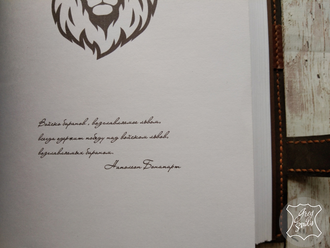 Войско баранов, возглавляемое львом,
всегда одержит победу над войском львов,
возглавляемых бараном.
Наполеон Бонапарт